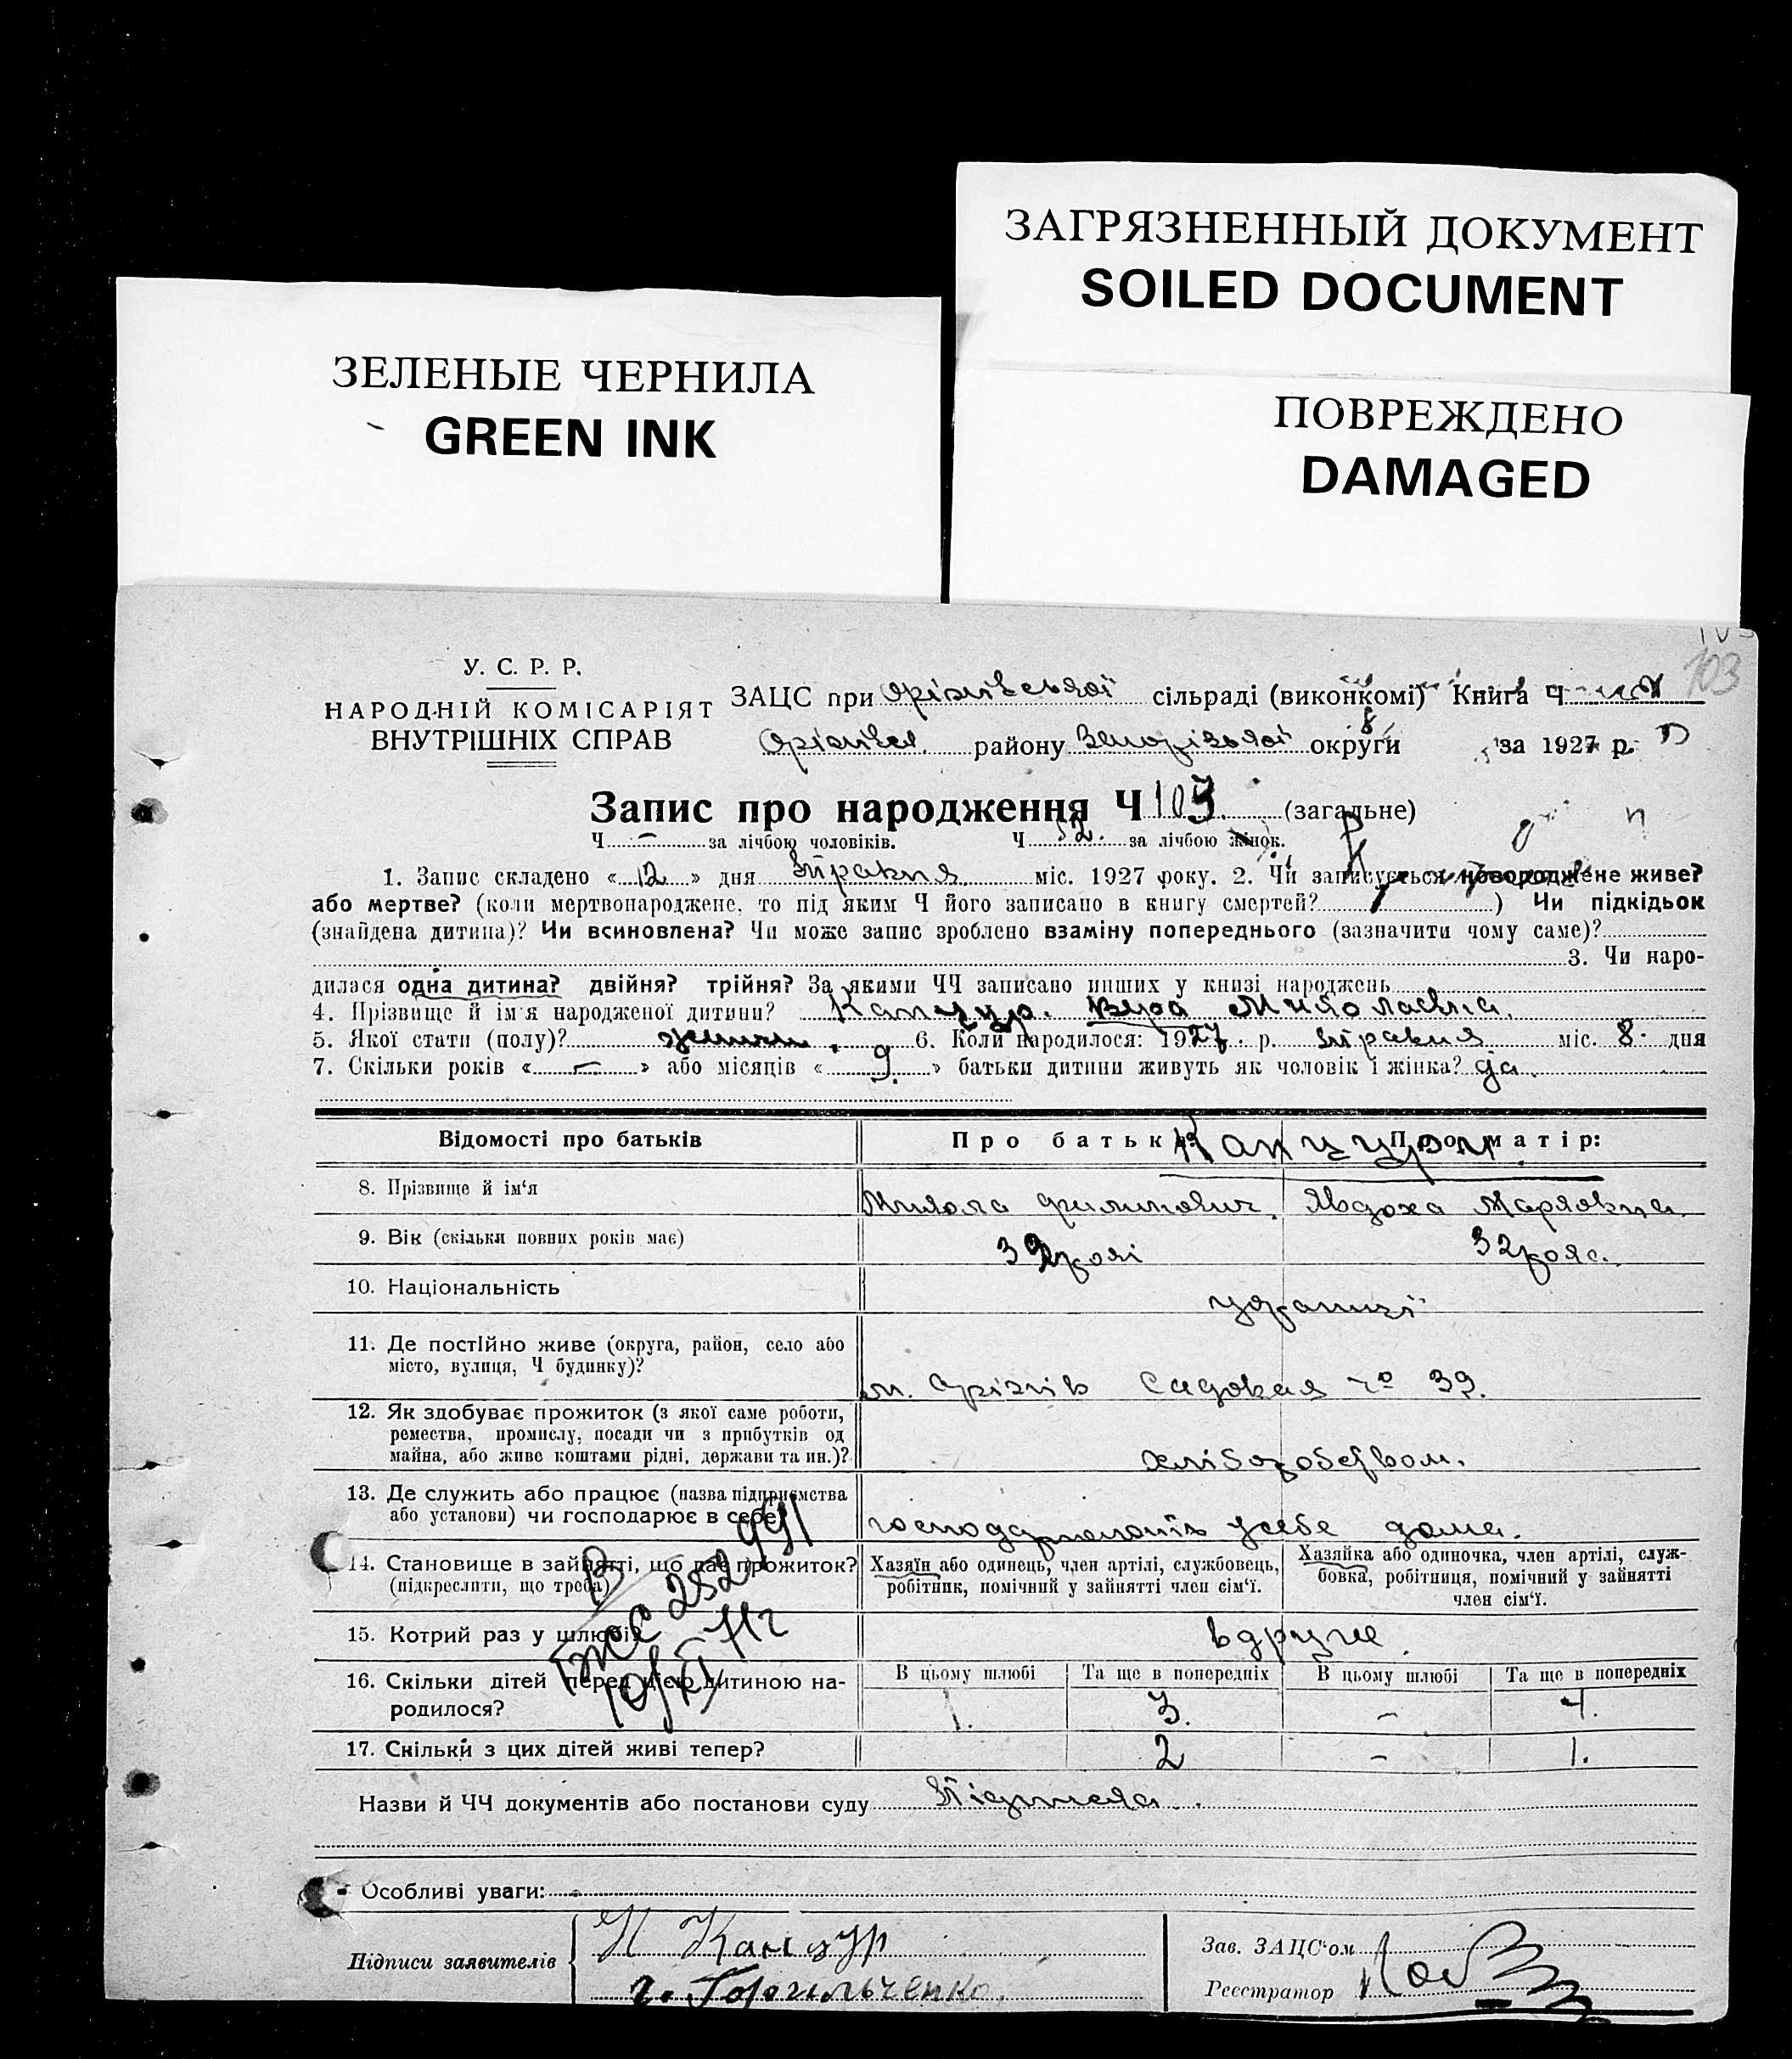 ЗАГРЯЗНЕННЫЙ ДОКУМЕНТ
SOILED DOCUMENT
ЗЕЛЕНЫЕ ЧЕРНИЛА
GREEN INK
ПОВРЕЖДЕНО
DAMAGED
103
У. С. Р. Р.
НАРОДНІЙ КОМІСАРІЯТ
ВНУТРІШНІХ СПРАВ
ЗАЦС при Оріхівській сільраді (виконкомі) Книга Ч
Оріхівськ. району Запорізької округи за 1927 р.
Запис про народження Ч 103. (загальне)
Ч — за лічбою чоловіків. Ч 52. за лічбою жінок.
1. Запис складено « 12 » дня травня міс. 1927 року. 2. Чи записується новороджене живе?
або мертве? (коли мертвонароджене, то під яким Ч його записано в книгу смертей? ) Чи підкідьок
(знайдена дитина)? Чи всиновлена? Чи може запис зроблено взаміну попереднього (зазначити чому саме)?
3. Чи наро-
дилася одна дитина? двійня? трійня? За якими ЧЧ записано инших у книзі народжень
4. Прізвище й ім'я народженої дитини? Канцур. Вера Миколаевна.
5. Якої стати (полу)? 6. Коли народилося: 1927. р. травня міс. 8. дня
7. Скільки років « — » або місяців « 9. » батьки дитини живуть як чоловік і жінка? да.
Відомості про батьків Про батька: Про матір:
Канцури.
8. Прізвище й ім'я Микола Филипович. Явдоха Марковна.
9. Вік (скільки повних років має) 39 років 32 рокс.
10. Національність українці
11. Де постійно живе (округа, район, село або
місто, вулиця, Ч будинку)?
м. Оріхів Садовая № 39.
12. Як здобуває прожиток (з якої саме роботи,
ремества, промислу, посади чи з прибутків од
майна, або живе коштами рідні, держави та ин.)?
хліборобством.
13. Де служить або працює (назва підприємства
або установи) чи господарює в себе?
у себе дома.
14. Становище в зайнятті, що дає прожиток?
(підкреслити, що треба)
Хазяїн або одинець, член артілі, службовець,
робітник, помічний у зайнятті член сім'ї.
Хазяйка або одиночка, член артілі, служ-
бовка, робітниця, помічний у зайнятті
член сім'ї.
15. Котрий раз у шлюбі? вдруге.
16. Скільки дітей перед цією дитиною на-
родилося?
В цьому шлюбі Та ще в попередніх В цьому шлюбі Та ще в попередніх
1. 3. — 4.
17. Скільки з цих дітей живі тепер? 2 — 1.
Назви й ЧЧ документів або постанови суду
Особливі уваги:
Підписи заявителів
Н Канцур
Зав. ЗАЦС'ом
Реєстратор